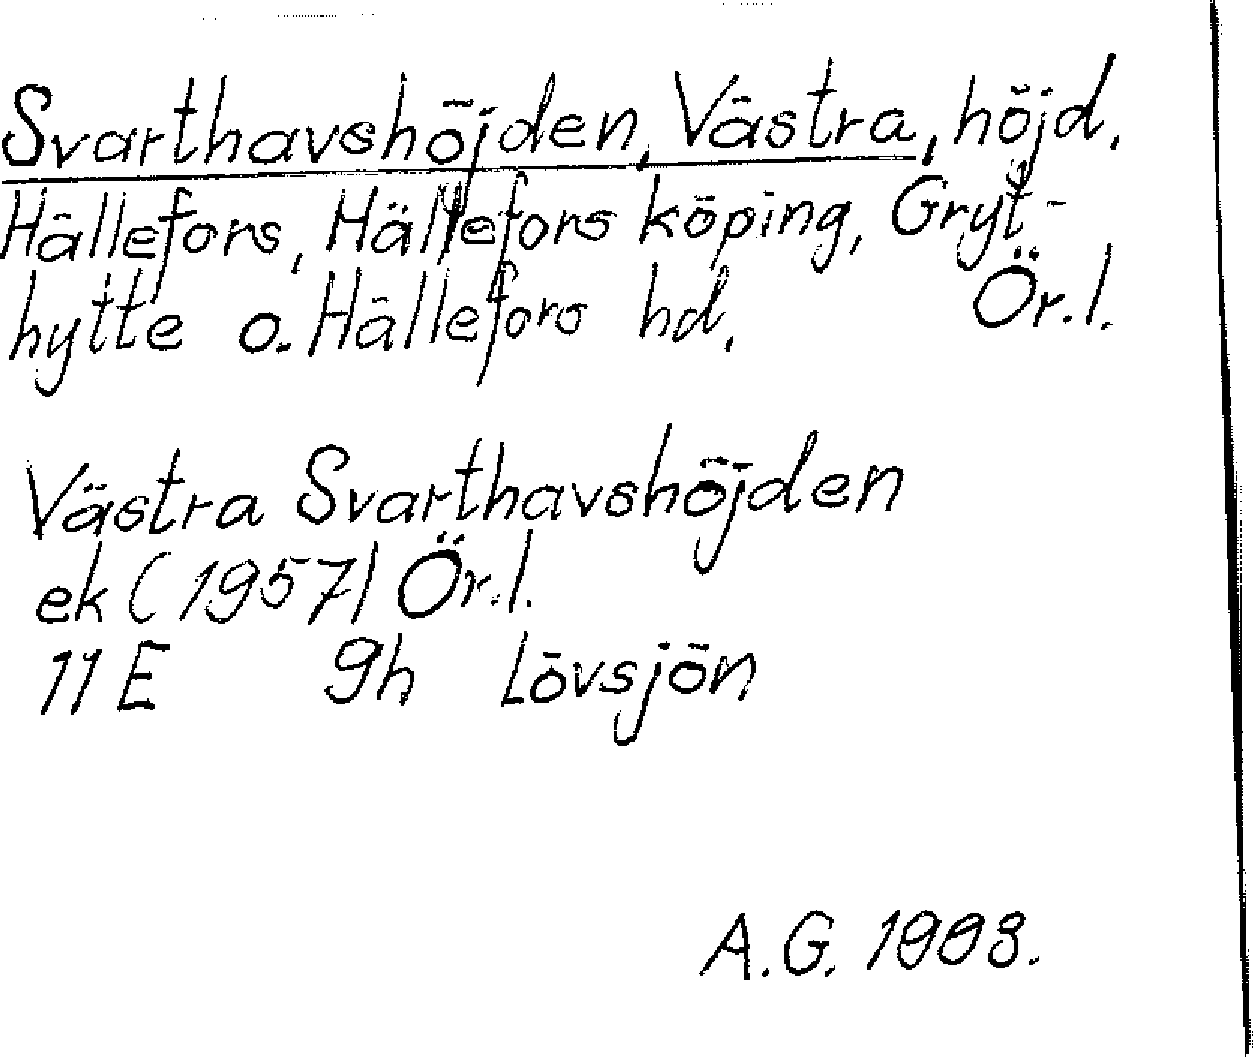 Svarthavshöjden, Västra, höjd.
Hällefors, Hällefors köping, Gryt-
hytte o. Hällefors hd. Ör.l.
Västra Svarthavshöjden
ek (1957) Ör.l.
11 E 9h Lövsjön
A.G. 1988.